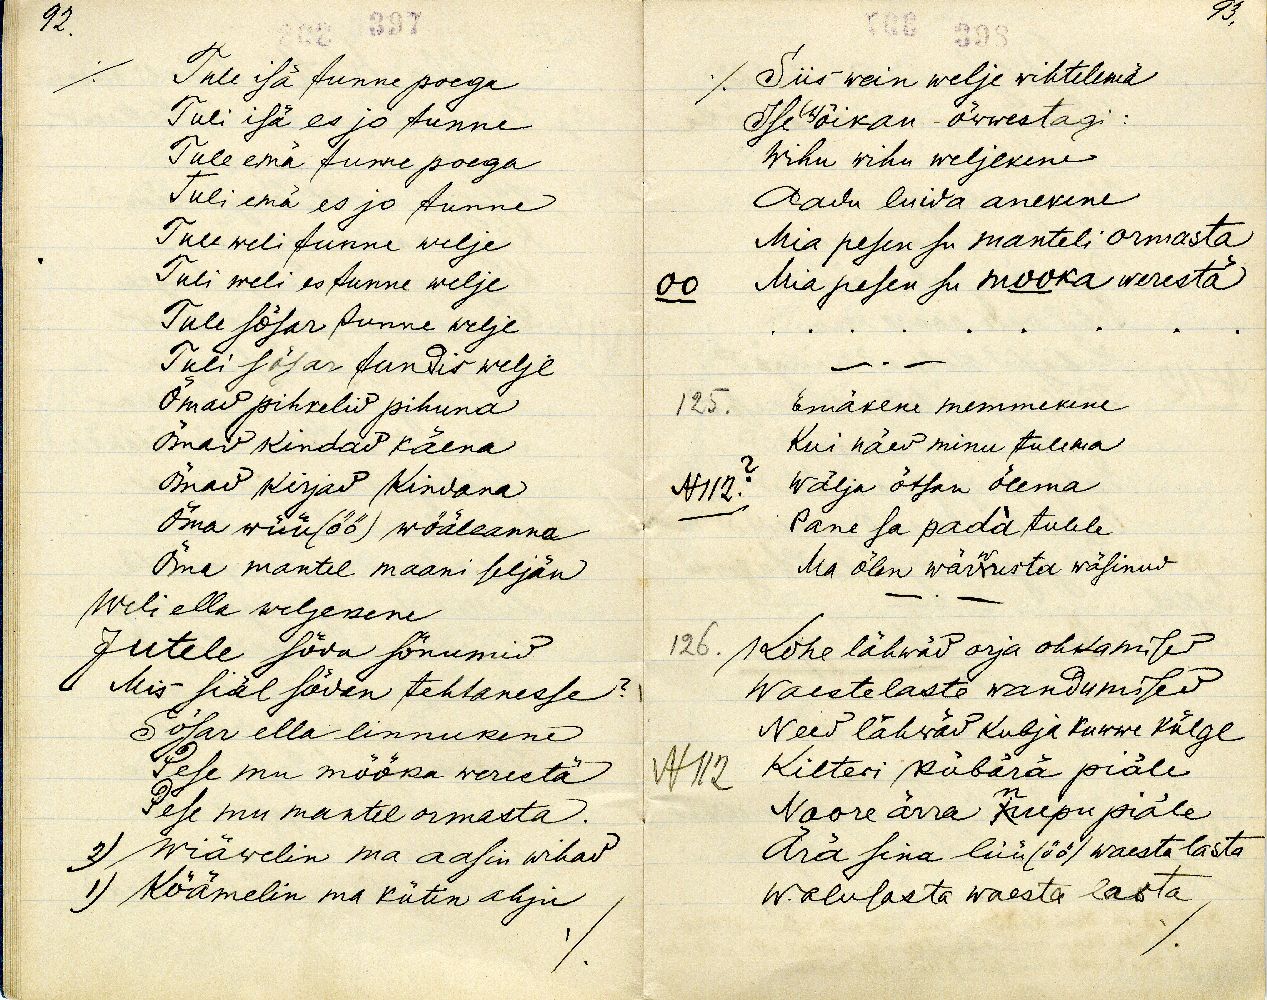 92.
397
./. Tule isä tunne poega
Tuli isä es jo tunne
Tule emä tunne poega
Tuli emä es jo tunne
Tule weli tunne welje
Tuli weli es tunne welje
Tule sõsar tunne welje
Tuli sõsar tundis welje
Õmad pihkelid pihuna
Õmad kindad käena
Õmad kirjad kindana
Õma wüü(öö) wööleanna
Õma mantel maani seljän
Weli ella weljekene
Jutele sõda sõnumid
Mis siäl sõdan tehtanesse?
Sõsar ella linnukene
Pese mu mõõka werestä
Pese mu mantel ormasta.
2) Wiäwelin ma aasin wihad
1) Köämelin ma kütin ahju
./.
93.
398
./. Siis wein welje wihtelemä
Ise (w)õikan - õwwestagi:
Wihu wihu weljekene
Aadu luida anekene
Mia pesen su manteli ormasta
oo Mia pesen su mooka werestä
. . . . . . . .
— . —
125. Emäkene memmekene
Kui näed minu tulema
N112.? Wälja õtsan õlema
Pane sa pada tulele
Ma õlen wäwusta wäsinud
— . —
126. Kohe lähwäd orja ohkamised
Waestelaste wandumised
Need lähwäd kubja kuwwe külge
N112 Kilteri kübärä piäle
Noore ärra nuepu piäle
Ärä sina lüü(öö) waesta lasta
W.alusasta waesta lasta
./.